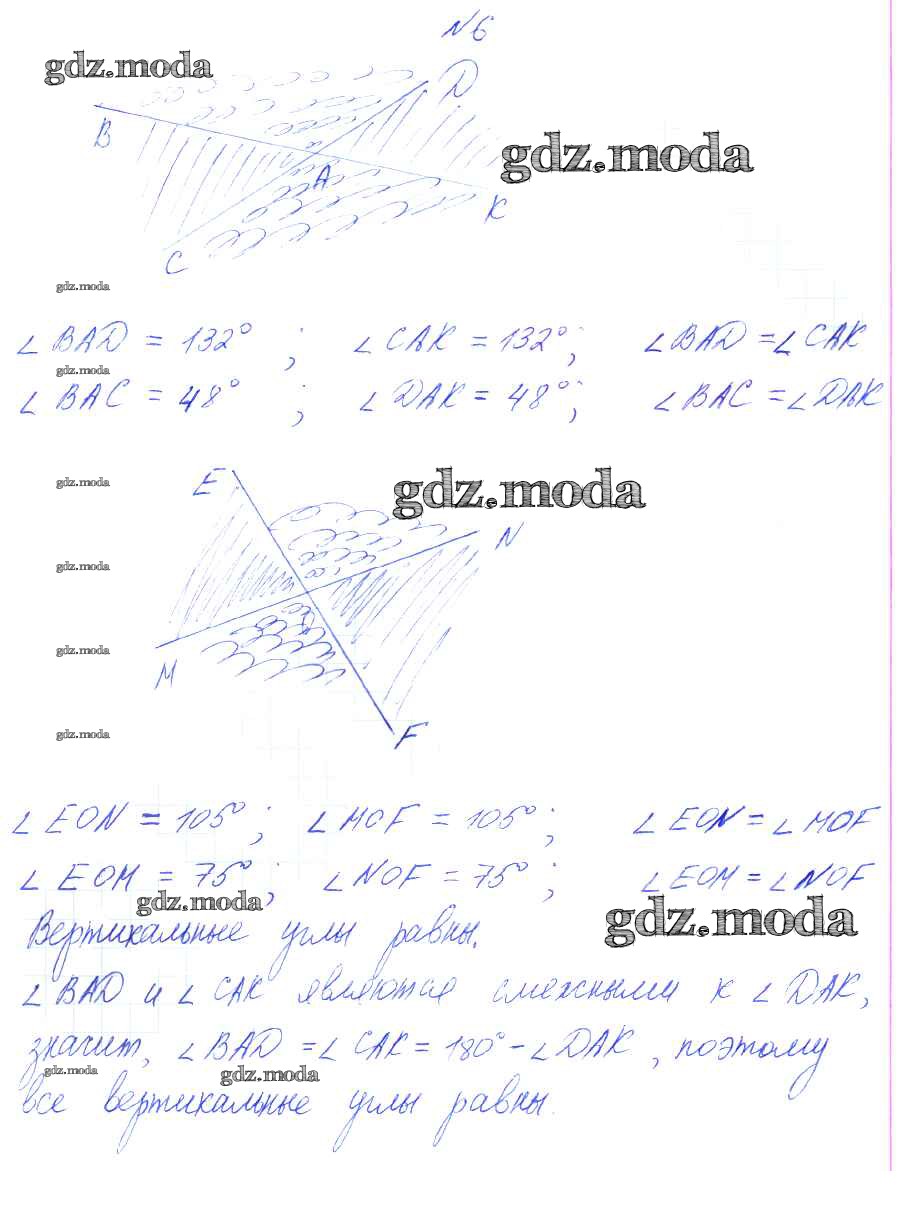 №6
gdz.moda
D
B
gdz.moda
A
K
C
gdz.moda
∠ BAD = 132° ; ∠ CAK = 132°; ∠ BAD = ∠ CAK
gdz.moda
∠ BAC = 48° ; ∠ DAK = 48°; ∠ BAC = ∠ DAK
E
gdz.moda
gdz.moda
N
gdz.moda
gdz.moda
M
gdz.moda
F
∠ EON = 105°; ∠ MOF = 105°; ∠ EON = ∠ MOF
∠ EOM = 75°; ∠ NOF = 75°; ∠ EOM = ∠ NOF
gdz.moda
gdz.moda
Вертикальные углы равны.
∠ BAD и ∠ CAK являются смежными к ∠ DAK,
значит, ∠ BAD = ∠ CAK = 180° - ∠ DAK, поэтому
gdz.moda
gdz.moda
все вертикальные углы равны.